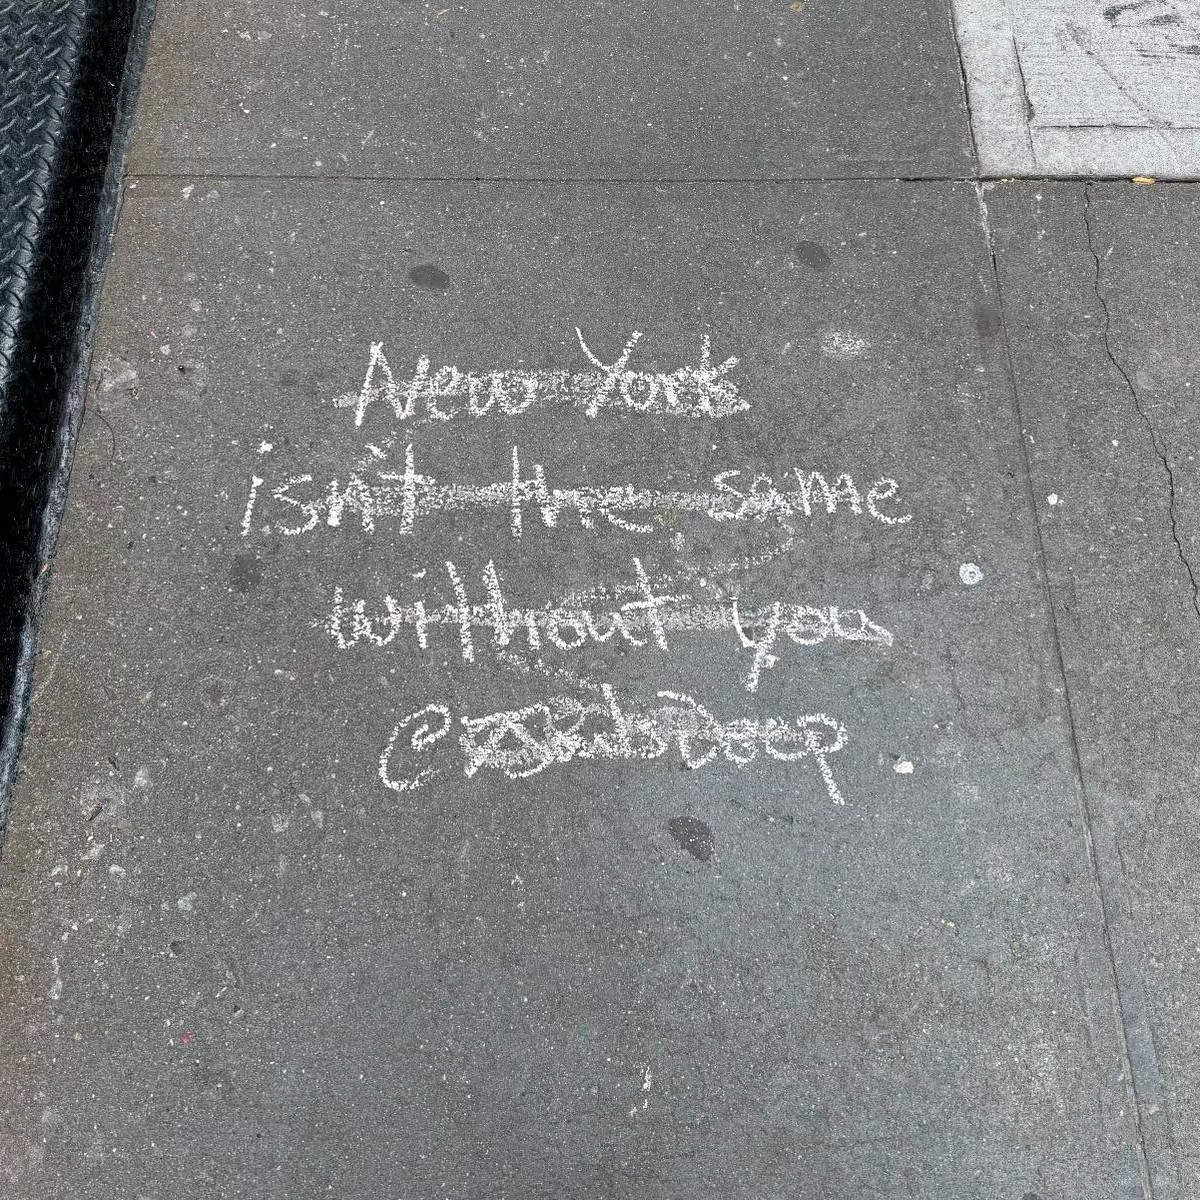 New York
isn't the same
without you